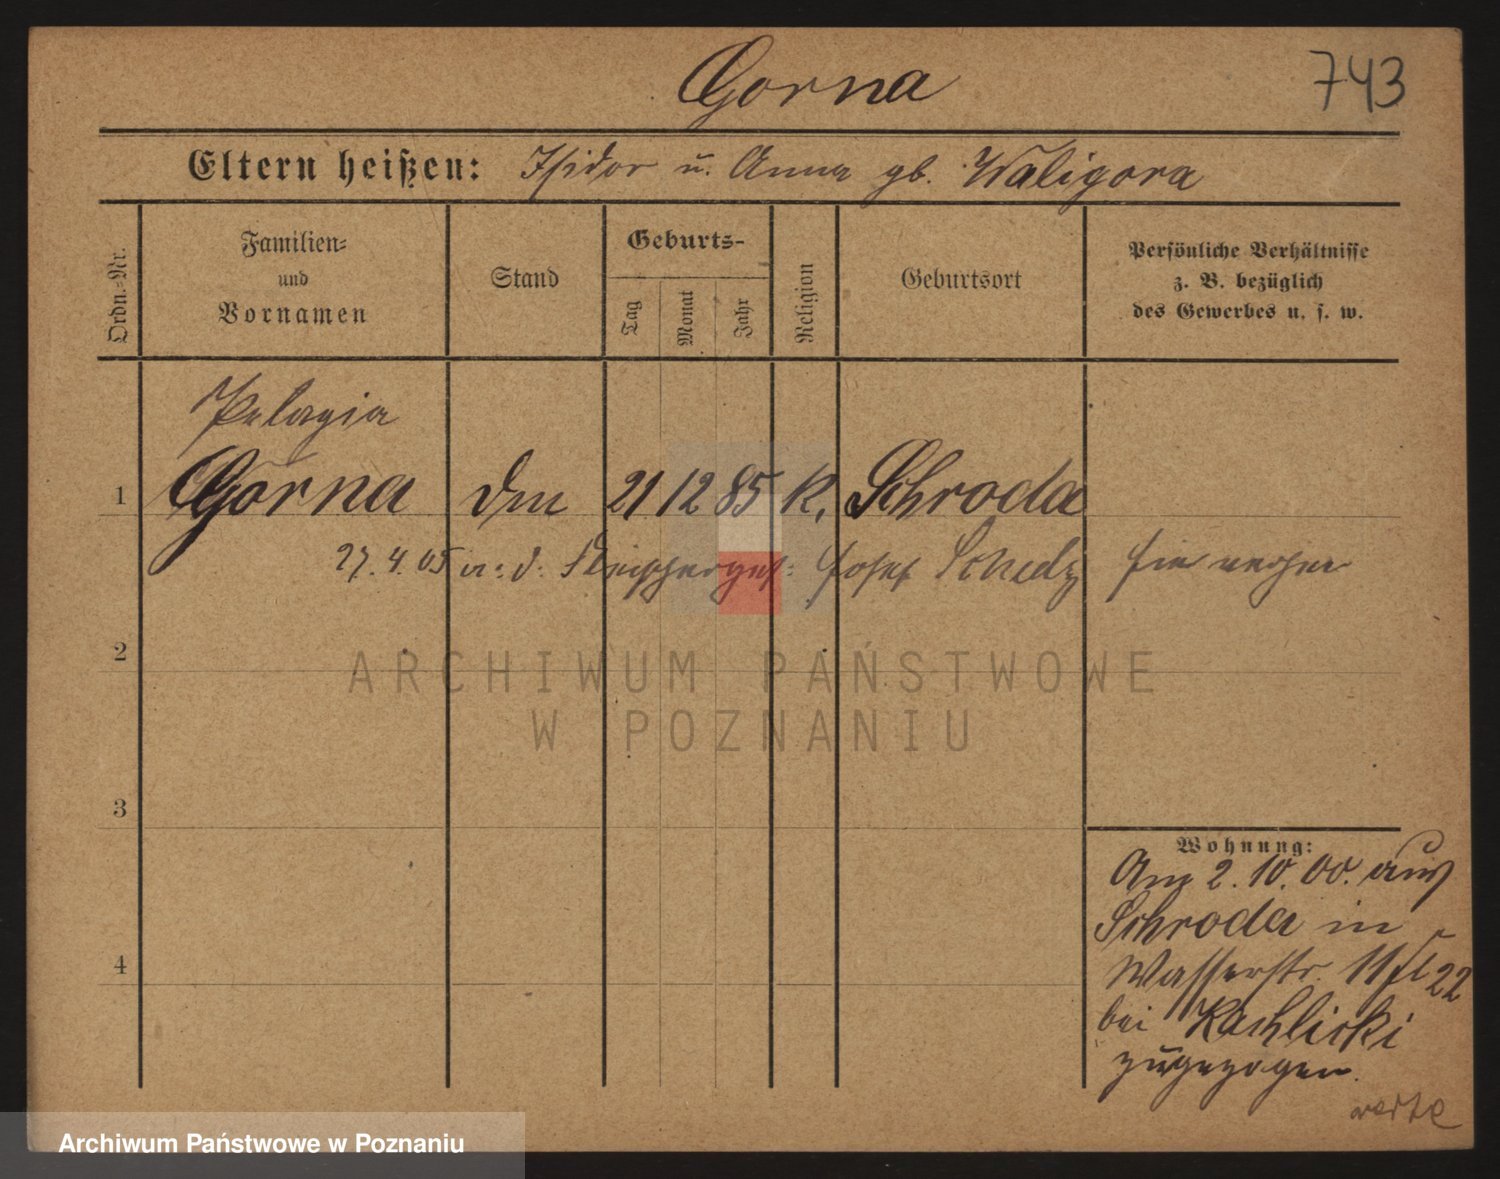 Gorna
743
Eltern heißen: Isidor u. Anna gb. Waligora
Ordn.-Nr.
Familien-
und
Vornamen
Stand
Geburts-
Tag
Monat
Jahr
Religion
Geburtsort
Persönliche Verhältnisse
z. B. bezüglich
des Gewerbes u. s. w.
Pelagia
1 Gorna 21 12 85 K. Schroda
27.4.05 Josef
2
ARCHIWUM PAŃSTWOWE
W POZNANIU
3
4
Wohnung:
Am 2.10.00. aus
Schroda in
Wasserstr. 11 22
bei Kachlicki
zugezogen.
Archiwum Państwowe w Poznaniu